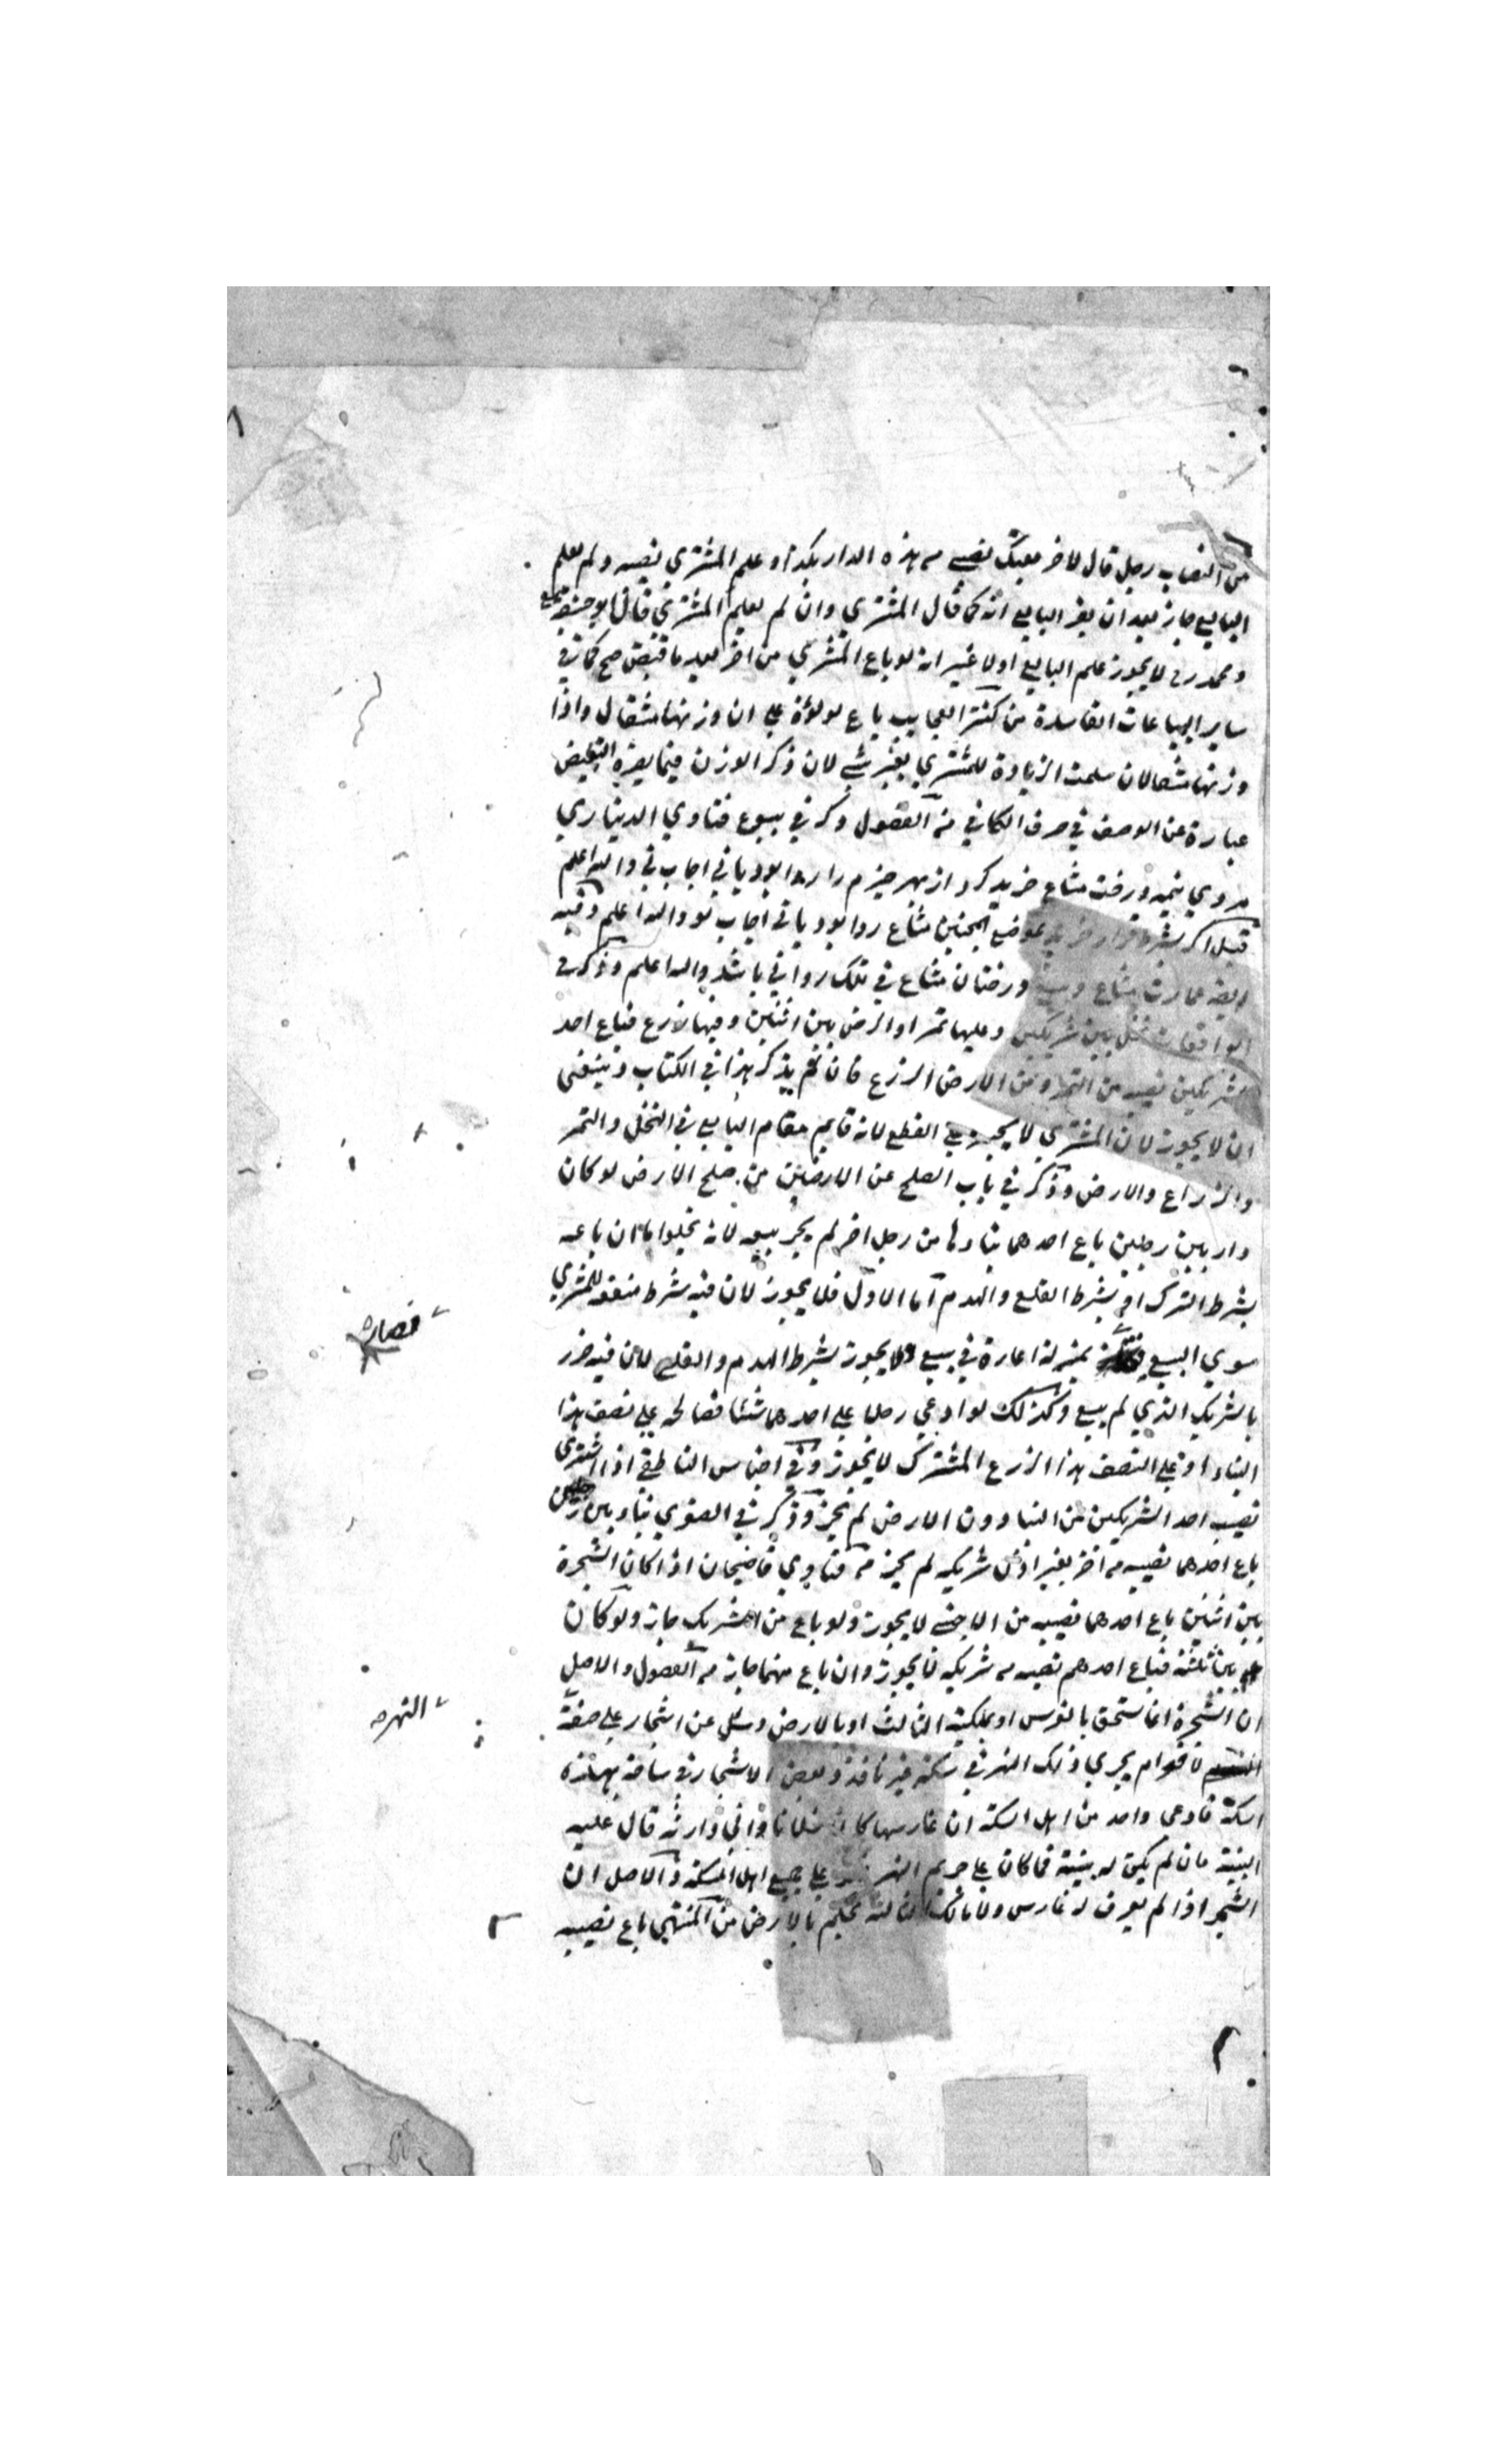 من النصاب رجل قال لاخر بعتك نصيبى من هذه الدار بكذا وعلم المشتري نصيبه ولم يعلم
البايع جاز بعد ان يقر البايع انه كما قال المشتري وان لم يعلم المشتري قال ابو حنيفة
ومحمد رح لا يجوز علم البايع اولا غير انه لو باع المشتري من اخر بعد ما قبض صح كما في
ساير البياعات الفاسدة من كنز باع لولؤة على ان وزنها مثقال واذا
وزنها مثقالان سلمت الزيادة للمشتري بغير شئ لان ذكر الوزن فيما يضره التبعيض
عبارة عن الوصف في صرف الكافي من الفصول ذكر في بيوع فتاوي الديناري
مردي نيمه درخت مشاع خريد كرد از بهر هيزم را روا بود يا ني اجاب ني والله اعلم
قيل اكر بشرط قرار خريد بموضع همچنين مشاع روا بود يا ني اجاب بود والله اعلم وفيه
ايضا عمارت مشاع درختان مشاع في تلك روا ني باشد والله اعلم وذكر في
الواقعات نخل بين شريكين وعليها تمر او ارض بين اثنين وفيها زرع فباع احد
الشريكين نصيبه من التمر او من الارض الزرع فان لم يذكر هذا في الكتاب وينبغي
ان لا يجوز لان المشتري لا يجبر على القطع لانه قايم مقام البايع في النخل والتمر
والزراع والارض وذكر في باب الصلح عن الارضين من صلح الارض لو كان
دار بين رجلين باع احدهما بناوها من رجل اخر لم يجز بيعه لانه يخلوا ما ان باعه
بشرط الترك او بشرط القلع والهدم اما الاول فلا يجوز لان فيه شرط منفعة للمشتري
سوي البيع بمنزلة اعارة في بيع ولا يجوز بشرط الهدم والقلع لان فيه ضرر
فصار
بالشريك الذي لم يبيع وكذلك لو ادعي رجل على احدهما شئا فصالحه على نصف هذا
البناء او على النصف هذا الزرع المشترك لا يجوز وفي اجناس الناطفي اذا اشترى
نصيب احد الشريكين من البناء دون الارض لم يجز وذكر في الصغري بناء بين رجلين
باع احدهما نصيبه من اخر بغير اذن شريكه لم يجز من فتاوي قاضيخان اذا كان الشجرة
بين اثنين باع احدهما نصيبه من الاجنبى لا يجوز ولو باع من الشريك جاز ولو كان
بين ثلثة فباع احدهم نصيبه من شريكه لا يجوز وان باع منهما جاز من الفصول والاصل
ان الشجرة انما ستحق بالغرس او بملكية الثالث او بالارض وسئل عن اشجار على صفة
النهر
لاقوام يجري ذلك النهر في سكة غير نافذة وبعض الاشجار في ساحة بهذه
السكة فادعى واحد من اهل السكة ان غارسها كان فلانا واني وارثه قال عليه
البينة فان لم يكن له بينة فما كان على حريم النهر على جميع اهل السكة والاصل ان
الشجر اذا لم يعرف له غارس ولا مالك بالارض من المنتهي باع نصيبه